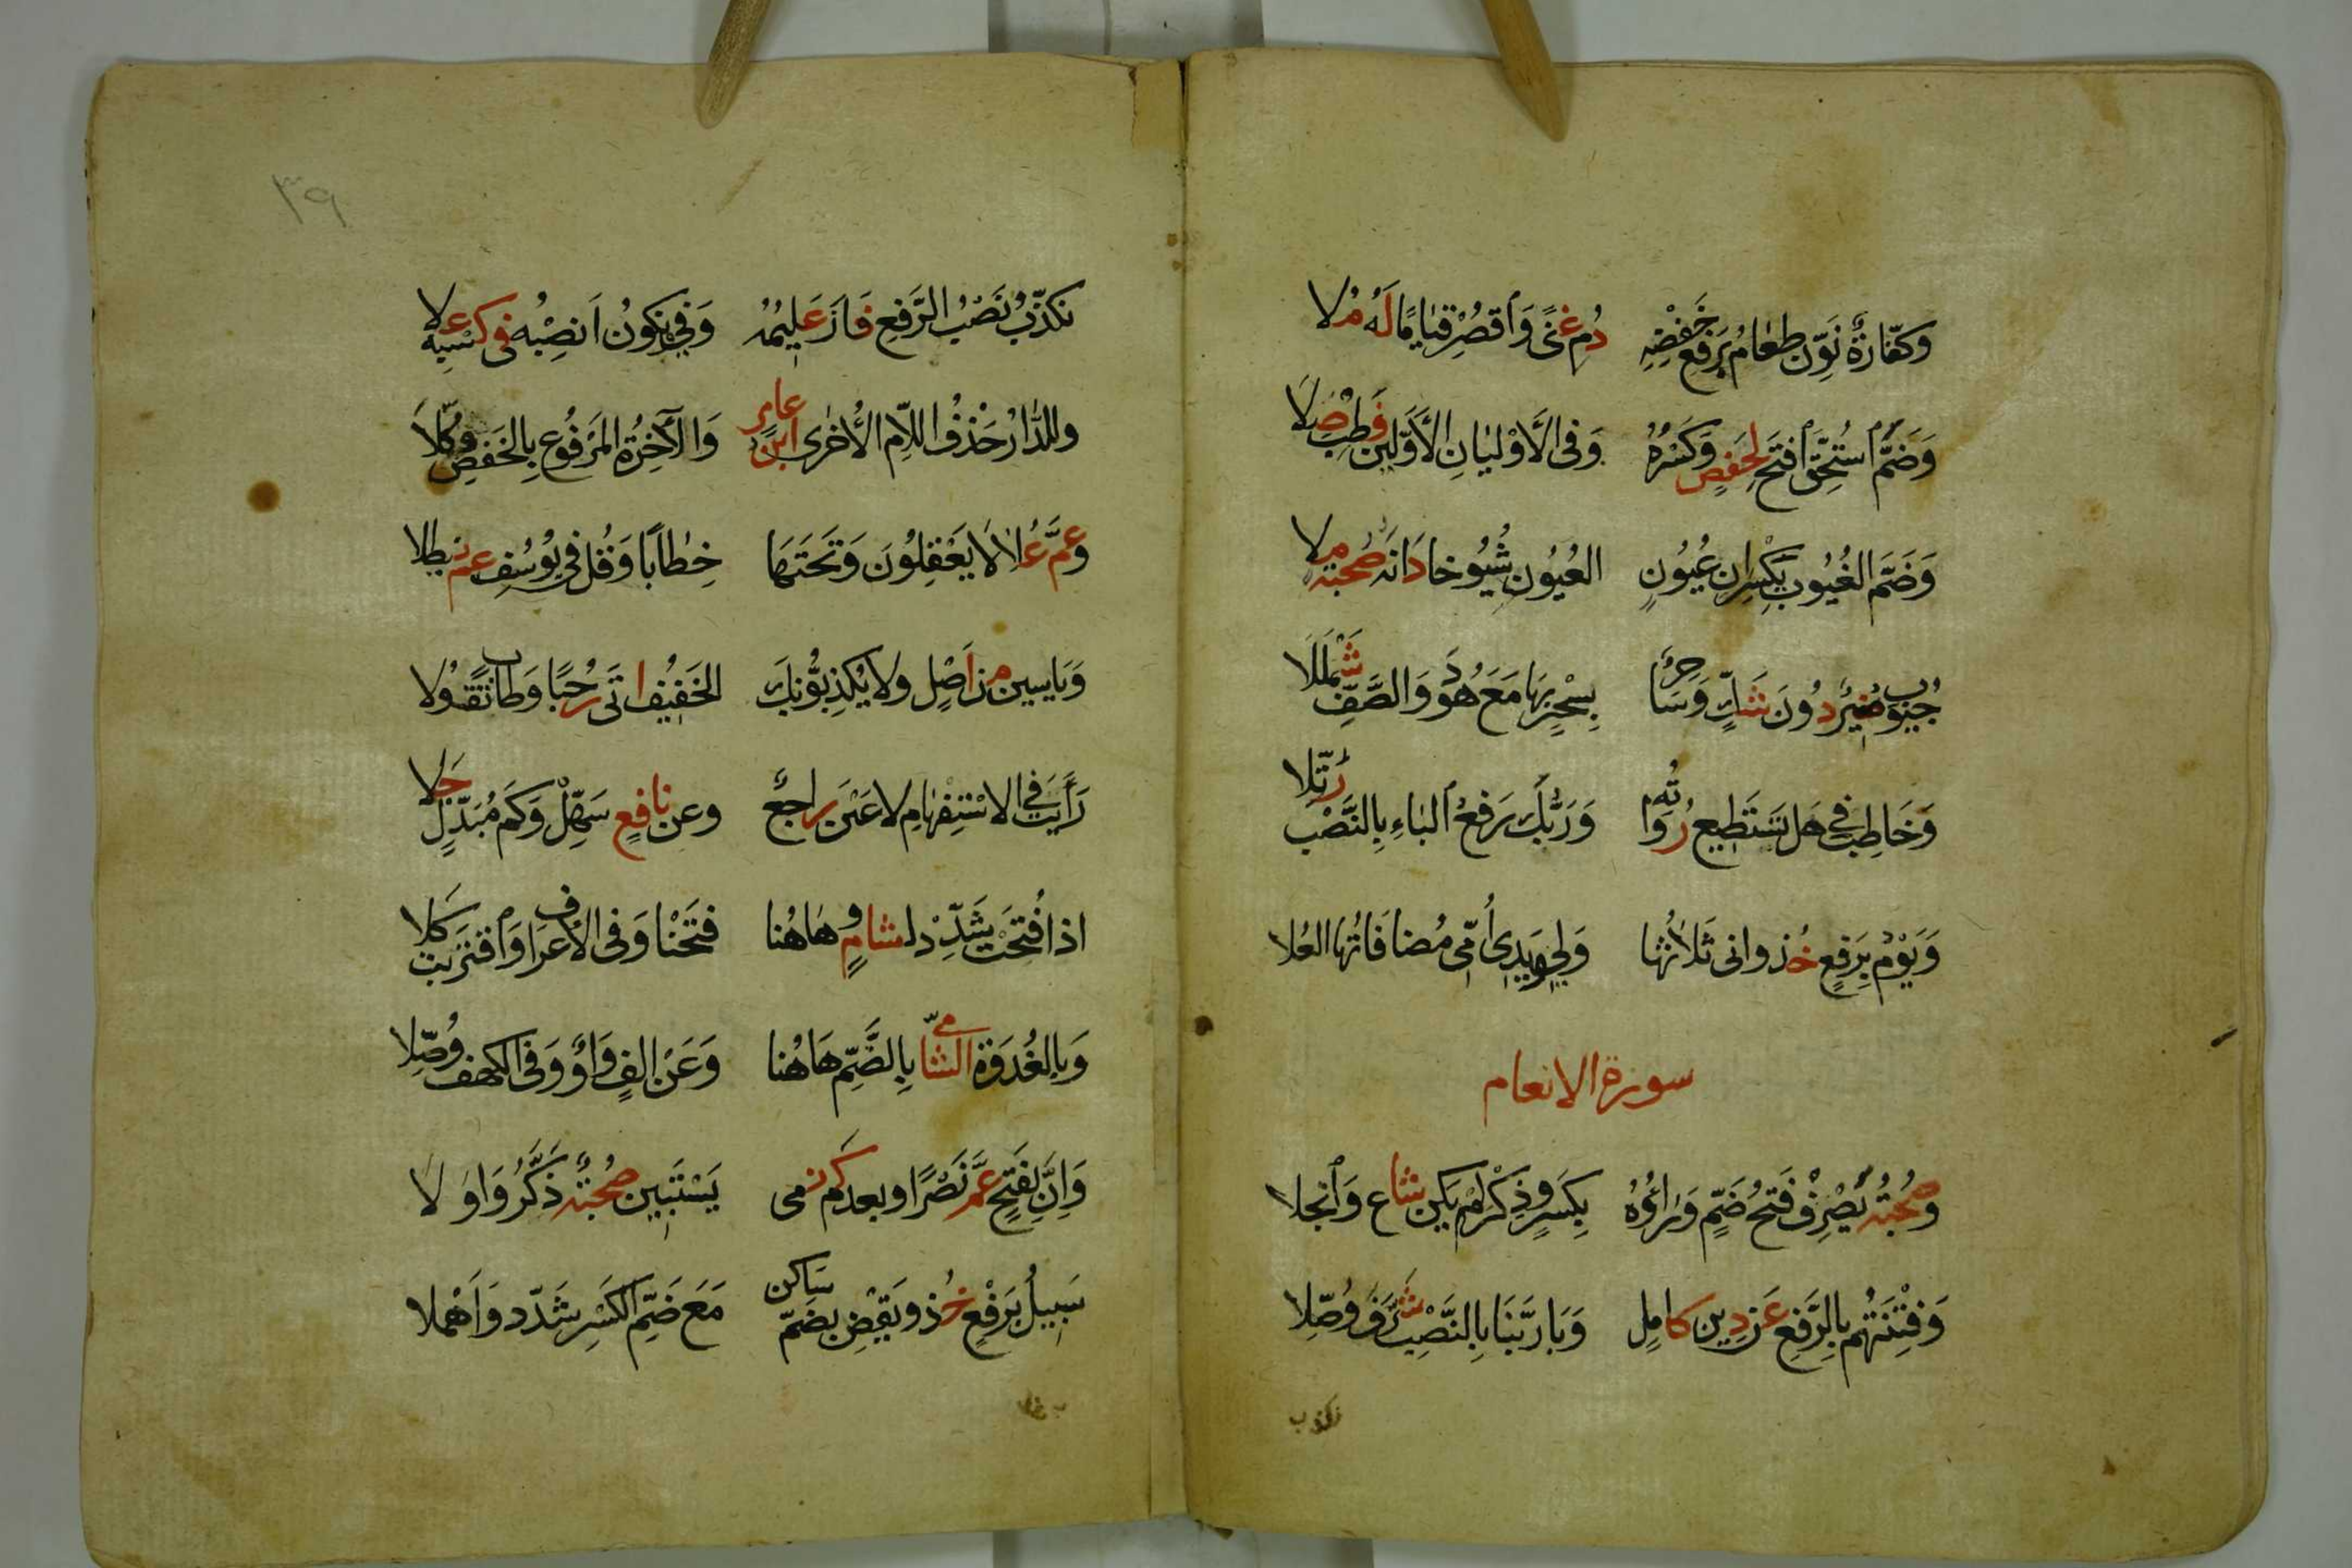 وَكَفَّارَةٌ نَوِّنْ طَعَامُ بِرَفْعِ خَفْضِهِ دُمْ غِنًى وَاقْصُرْ قِيَامًا لَهُ مُلَا
وَضَمَّ اسْتُحِقَّ افْتَحْ لِحَفْصٍ وَكَسْرُهُ وَفِي الْأَوْلَيَانِ الْأَوَّلِينَ فَطِبْ صِلَا
وَضَمَّ الْغُيُوبِ يَكْسِرَانِ عُيُونِ الْعُيُونِ شُيُوخًا دَانَهُ صُحْبَةٌ مِلَا
جُيُوبِ مُنِيرٌ دُونَ شَكٍّ وَسَاحِرٌ بِسِحْرٌ بِهَا مَعَ هُودَ وَالصَّفِّ شَمْلَلَا
وَخَاطِبْ فِي هَلْ تَسْتَطِيعُ رُوَاتُهُ وَرَبُّكَ رَفْعُ الْبَاءِ بِالنَّصْبِ رُتِّلَا
وَيَوْمُ بِرَفْعٍ خُذْ وَإِنِّي ثَلَاثُهَا وَلِي وَيَدِي أُمِّي مُضَافَاتُهَا الْعُلَا
سورة الانعام
وَصُحْبَةُ يُصْرَفْ فَتْحُ ضَمٍّ وَرَاؤُهُ بِكَسْرٍ وَذَكِّرْ لَمْ يَكُنْ شَاعَ وَانْجَلَا
وَفِتْنَتُهُمْ بِالرَّفْعِ عَنْ دِينِ كَامِلٍ وَبَا رَبَّنَا بِالنَّصْبِ شَرَّفَ وُصَّلَا
نكذب
٣٩
نُكَذِّبُ نَصْبُ الرَّفْعِ فَازَ عَلِيمُهُ وَفِي وَنَكُونُ انْصِبْهُ فِي كَسْبِهِ عُلَا
وَلَلدَّارُ حَذْفُ اللَّامِ الْأُخْرَى ابْنُ عَامِرٍ وَالْآخِرَةُ الْمَرْفُوعُ بِالْخَفْضِ وُكِّلَا
وَعَمَّ عُلًا لَا يَعْقِلُونَ وَتَحْتَهَا خِطَابًا وَقُلْ فِي يُوسُفٍ عَمَّ نَيْطَلَا
وَيَاسِينَ مِنْ أَصْلٍ وَلَا يُكْذِبُونَكَ الْخَفِيفُ أَتَى رُحْبًا وَطَابَ تَقَوُّلَا
رَأَيْتَ فِي الِاسْتِفْهَامِ لَا عَيْنَ رَاجِعٌ وَعَنْ نَافِعٍ سَهِّلْ وَكَمْ مُبْدِلٍ جَلَا
إِذَا فُتِحَتْ شَدِّدْ لِشَامٍ وَهَاهُنَا فَتَحْنَا وَفِي الْأَعْرَافِ وَاقْتَرَبَتْ كَلَا
وَبِالْغُدْوَةِ الشَّامِيُّ بِالضَّمِّ هَاهُنَا وَعَنْ أَلِفٍ وَاوٌ وَفِي الْكَهْفِ وُصِّلَا
وَإِنَّ بِفَتْحٍ عَمَّ نَصْرًا وَبَعْدُ كَمْ نَمَى يَسْتَبِينَ صُحْبَةٌ ذَكَّرُوا وَلَا
سَبِيلُ بِرَفْعٍ خُذْ وَيَقْضِ بِضَمِّ سَاكِنٍ مَعَ ضَمِّ الْكَسْرِ شَدِّدْ وَأَهْمِلَا